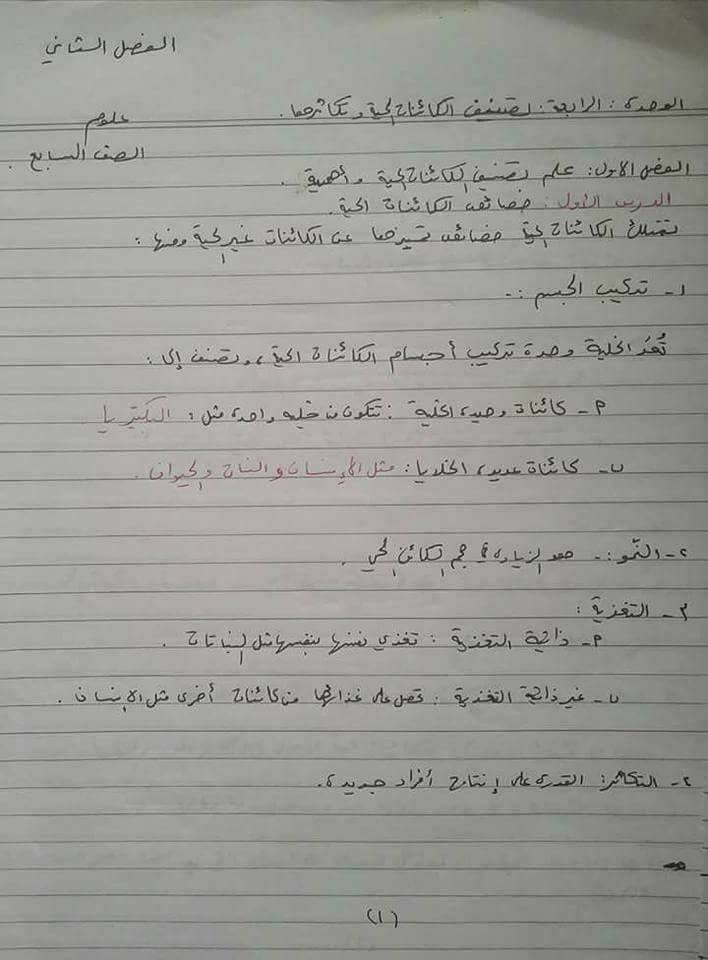 الفصل الثاني
الوحدة: الرابعة: تصنيف الكائنات الحية وتكاثرها.
علوم
الصف السابع.
الفصل الاول: علم تصنيف الكائنات الحية وأهميته.
الدرس الأول: خصائص الكائنات الحية.
تمتلك الكائنات الحية خصائص تميزها عن الكائنات غير الحية ومنها:
١- تركيب الجسم :-
تُعَد الخلية وحدة تركيب أجسام الكائنات الحية، وتصنف إلى:
أ- كائنات وحيدة الخلية: تتكون من خلية واحدة مثل: البكتيريا
ب- كائنات عديدة الخلايا: مثل الإنسان والنبات والحيوان.
٢- النمو:- هو الزيادة في حجم الكائن الحي.
٣- التغذية:
أ- ذاتية التغذية: تغذي نفسها بنفسها مثل النباتات.
ب- غير ذاتية التغذية: تحصل على غذائها من كائنات أخرى مثل الإنسان.
٤- التكاثر: القدرة على إنتاج أفراد جديدة.
(١)